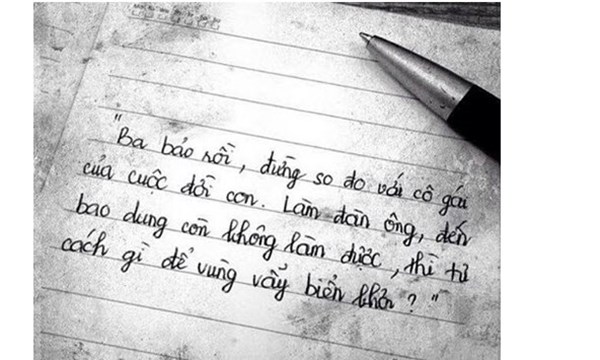 "Ba bảo rồi, đừng so đo với cô gái
của cuộc đời con. Làm đàn ông, đến
bao dung còn không làm được, thì tư
cách gì để vùng vẫy biển khơi?"